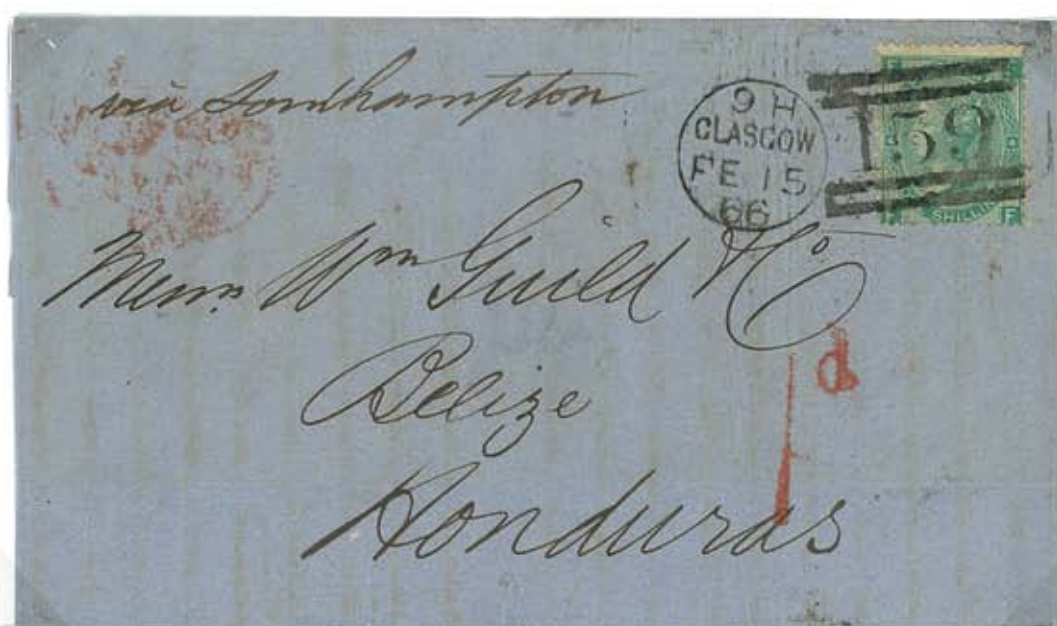 via Southampton
9 H
GLASGOW
FE 15
66
159
SHILLING
F
Messrs Wm Guild & Co
Belize
1d
Honduras